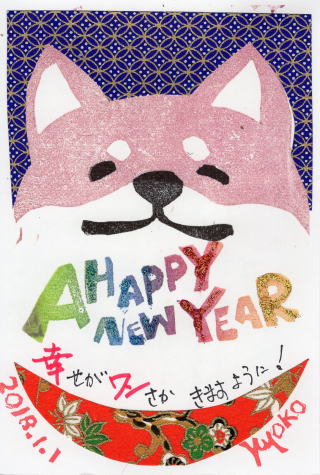 A HAPPY
NEW YEAR
幸せがワンさか きますように!
2018.1.1
Yyoko